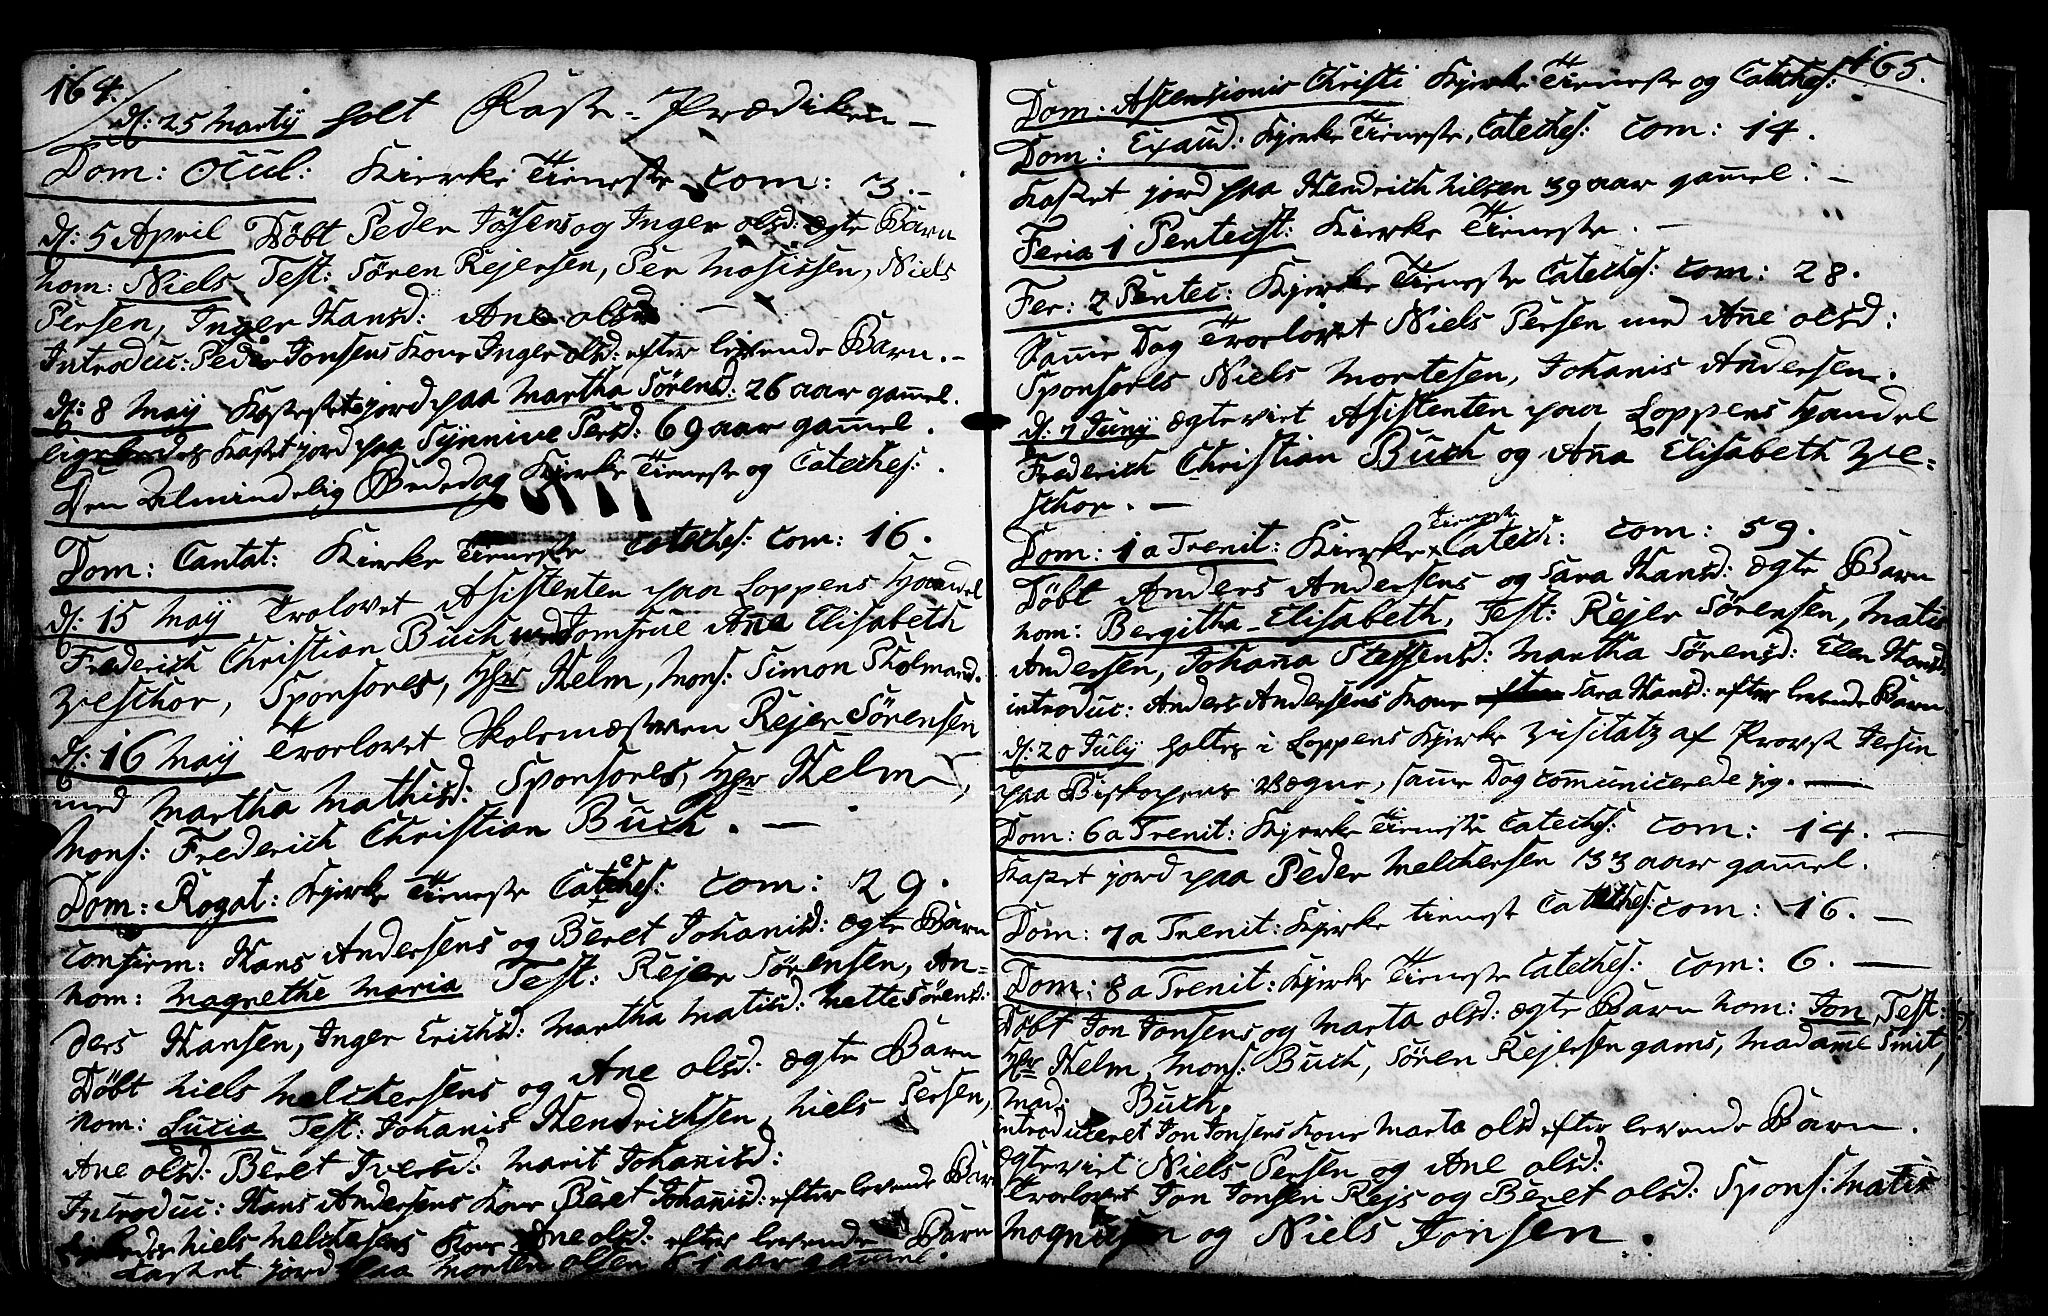 164.
d: 25 Martij holt Faste-Prædiken –
Dom: Ocul: Kierke Tieneste com: 3. –
d: 5 April Døbt Peder Jonsens og Inger olsd: ægte Barn
nom: Niels Test: Sören Rejersen, Per Mosissen, Niels
Persen, Inger Hansd: Ane olsd –
Introduc: Peder Jonsens Kone Inger olsd: efter levende Barn. –
d: 8 Maij Kastet jord paa Martha Sörensd: 26 aar gamel.
ligeledes Kastet jord paa Synnive Persd: 69 aar gamel.
Den Almindelig Bededag Kjerke Tieneste og Cateches:.
Dom: Cantat: Kierke Tieneste Cateches: com: 16.
d: 15 Maij Trolovet Assistenten paa Loppens Handel
Frederich Christian Buch med Jomfrue Ane Elisabeth
Zeschor, Sponsores, Hr Helm, Mons: Simon Kolmand.
d: 16 Maij Troelovet Skolemæsteren Rejer Sörensen
med Martha Mathisd: Sponsores, Hr Helm,
Mons: Frederich Christian Buch. –
Dom: Rogat: Kjerke Tieneste Cateches: com: 29.
Confirm: Hans Andersens og Beret Johanisd: ægte Barn
nom: Magrethe Maria Test: Rejer Sörensen, An-
ders Hansen, Inger Erichsd: Martha Matisd: Mette Sörensd:
Døbt Niels Melchersens og Ane olsd: ægte Barn
nom: Lucia Test: Johanis Hendrichsen, Niels Persen,
Ane olsd: Beret Iversd: Marit Johanisd:
Introduc: Hans Andersens Kone Beret Johanisd: efter levende Barn
ligeledes Niels Melchersens Kone Ane olsd: efter levende Barn
Kastet jord paa Morten olsen aar gamel.
165.
Dom: Ascensionis Christi Kjerke Tieneste og Cateches:
Dom: Exaud: Kjerke Tieneste, Cateches: com: 14.
Kastet jord paa Hendrich Nilsen 39 aar gamel. –
Feria 1 Pentecst: Kierke Tieneste. –
Fer: 2 Pentec: Kjerke Tieneste Cateches: com: 28.
Samme Dag Troelovet Niels Persen med Ane olsd:
Sponsores Niels Mortesen, Johanis Andersen.
d: 7 Junij ægteviet Assistenten paa Loppens Handel
Frederich Christian Buch og Ana Elisabeth Ze-
schor. –
Dom: 1 a Trenit: Kierke Tieneste Catech: com: 59.
Døbt Anders Andersens og Sara Hansd: ægte Barn
nom: Bergitha Elisabeth, Test: Rejer Sörensen, Matis
Andersen, Johana Steffensd: Martha Sörensd: Elen Hansd:
introduc: Anders Andersens Kone efter Sara Hansd: efter levende Barn
d: 20 Julij holtes i Loppens Kjerke Visitatz af Provst Jersin
paa Biskopens Vægne, same Dag comunicerede jeg. –
Dom: 6 a Trenit: Kjerke Tieneste Cateches: com: 14. –
Kastet jord paa Peder Melchersen 33 aar gamel.
Dom: 7 a Trenit: Kjerke tieneste Cateches: com: 16. –
Dom: 8 a Trenit: Kjerke Tieneste Cateches: com: 6. –
Døbt Jon Jonsens og Marta olsd: ægte Barn nom: Jon, Test:
Hr Helm, Mons: Buch, Sören Rejersen gams, Madame Smit,
Mad: Buch.
introduceret Jon Jonsens Kone Marta olsd efter levende Barn.
ægteviet Niels Persen og Ane olsd:
Troelovet Jon Jonsen Rejs og Beret olsd: Spons: Matis
Magnusen og Niels Jonsen.